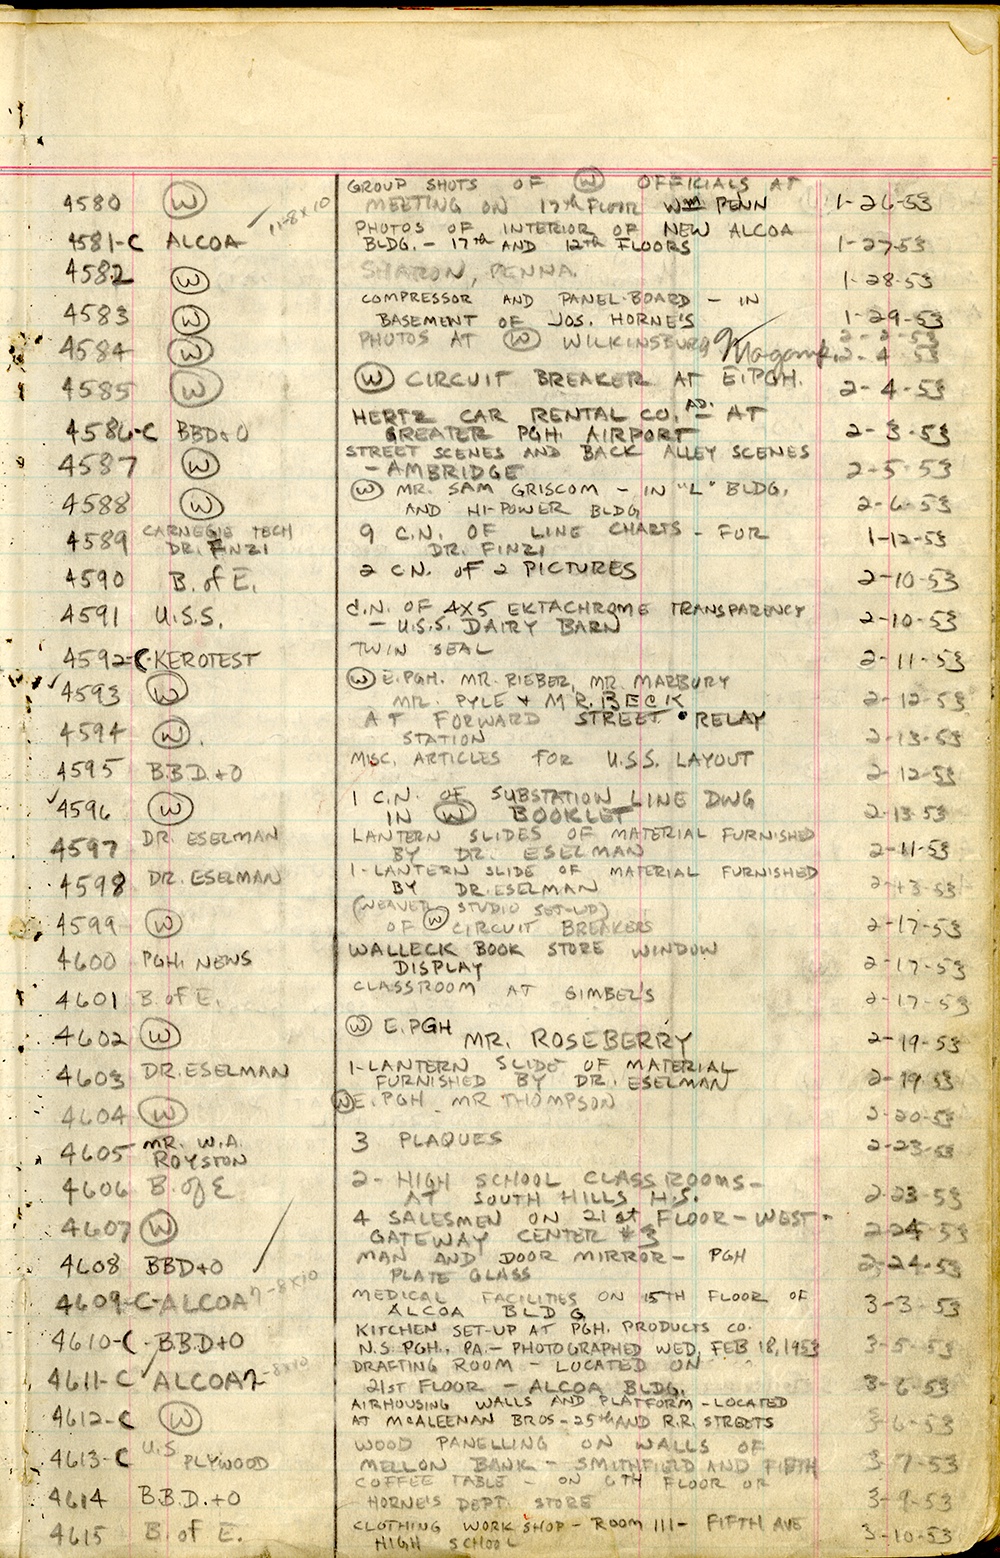 4580 Ⓦ GROUP SHOTS OF Ⓦ OFFICIALS AT
MEETING ON 17th FLOOR Wm PENN 1-26-53
11-8x10
4581-C ALCOA PHOTOS OF INTERIOR OF NEW ALCOA
BLDG. - 17th AND 12th FLOORS 1-27-53
4582 Ⓦ SHARON, PENNA. 1-28-53
4583 Ⓦ COMPRESSOR AND PANEL-BOARD - IN
BASEMENT OF JOS. HORNE'S 1-29-53
4584 Ⓦ PHOTOS AT Ⓦ WILKINSBURG 2-4 53
4585 Ⓦ Ⓦ CIRCUIT BREAKER AT E.PGH. 2-4-53
4586-C BBD+O HERTZ CAR RENTAL CO. AD. - AT
GREATER PGH. AIRPORT 2-3-53
4587 Ⓦ STREET SCENES AND BACK ALLEY SCENES
- AMBRIDGE 2-5-53
4588 Ⓦ Ⓦ MR. SAM GRISCOM - IN "L" BLDG.
AND HI-POWER BLDG 2-6-53
4589 CARNEGIE TECH
DR. FINZI 9 C.N. OF LINE CHARTS - FOR
DR. FINZI 1-12-53
4590 B. of E. 2 C.N. of 2 PICTURES 2-10-53
4591 U.S.S. C.N. OF 4X5 EKTACHROME TRANSPARENCY
- U.S.S. DAIRY BARN 2-10-53
4592-C-KEROTEST TWIN SEAL 2-11-53
4593 Ⓦ Ⓦ E.PGH. MR. RIEBER, MR. MARBURY
MR. PYLE + MR. BECK 2-12-53
4594 Ⓦ. AT FORWARD STREET RELAY
STATION 2-13-53
4595 B.B.D.+O MISC. ARTICLES FOR U.S.S. LAYOUT 2-12-53
4596 Ⓦ 1 C.N. OF SUBSTATION LINE DWG
IN Ⓦ BOOKLET 2-13-53
4597 DR. ESELMAN LANTERN SLIDES OF MATERIAL FURNISHED
BY DR. ESELMAN 2-11-53
4598 DR. ESELMAN 1-LANTERN SLIDE OF MATERIAL FURNISHED
BY DR. ESELMAN 2-13-53
4599 Ⓦ (WEAVER STUDIO SET-UP)
OF Ⓦ CIRCUIT BREAKERS 2-17-53
4600 PGH. NEWS WALLECK BOOK STORE WINDOW
DISPLAY 2-17-53
4601 B. of E. CLASSROOM AT GIMBEL'S 2-17-53
4602 Ⓦ Ⓦ E.PGH
MR. ROSEBERRY 2-19-53
4603 DR. ESELMAN 1-LANTERN SLIDE OF MATERIAL
FURNISHED BY DR. ESELMAN 2-19 53
4604 Ⓦ Ⓦ E.PGH - MR THOMPSON 2-20-53
4605 MR. W.A.
ROYSTON 3 PLAQUES 2-23-53
4606 B. of E 2-HIGH SCHOOL CLASSROOMS-
AT SOUTH HILLS H.S. 2-23-53
4607 Ⓦ 4 SALESMEN ON 21st FLOOR - WEST-
GATEWAY CENTER #3 2-24-53
4608 BBD+O MAN AND DOOR MIRROR - PGH
PLATE GLASS 2-24-53
4609-C-ALCOA 7-8x10 MEDICAL FACILITIES ON 15TH FLOOR OF
ALCOA BLDG 3-3-53
4610-C - B.B.D+O KITCHEN SET-UP AT PGH. PRODUCTS CO.
N.S. PGH., PA. - PHOTOGRAPHED WED, FEB 18, 1953 3-5-53
4611-C ALCOA 7-8x10 DRAFTING ROOM - LOCATED ON
21ST FLOOR - ALCOA BLDG. 3-6-53
4612-C Ⓦ AIRHOUSING WALLS AND PLATFORM - LOCATED
AT McALEENAN BROS - 25th AND R.R. STREETS 3-6-53
4613-C U.S
PLYWOOD WOOD PANELLING ON WALLS OF
MELLON BANK - SMITHFIELD AND FIFTH 3-7-53
4614 B.B.D.+O COFFEE TABLE - ON 6TH FLOOR OF
HORNE'S DEPT. STORE 3-9-53
4615 B. of E. CLOTHING WORKSHOP - ROOM 111 - FIFTH AVE
HIGH SCHOOL 3-10-53